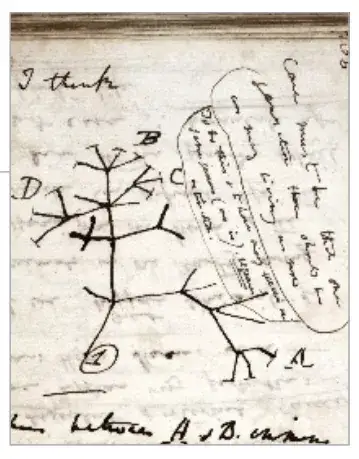 I think
B
D
C
Case must be that one
generation then should be
as many living as now
To do this & to have many species in
same genus (as is) requires
extinction
1
A
between A & B. immens